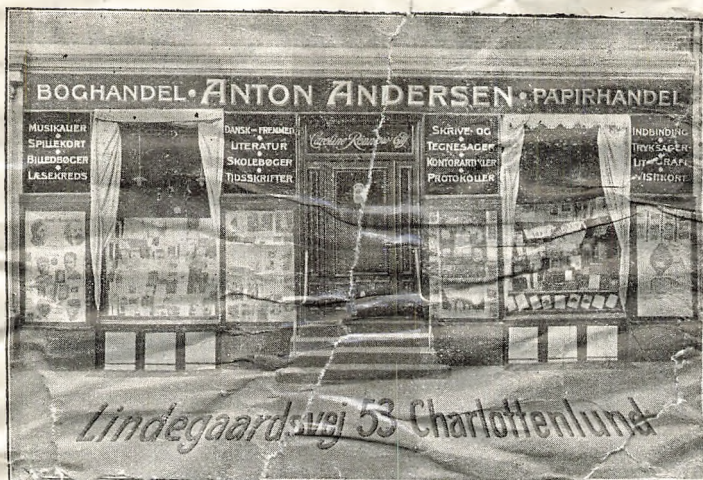 BOGHANDEL • ANTON ANDERSEN • PAPIRHANDEL
MUSIKALIER
SPILLEKORT
BILLEDBØGER
LÆSEKREDS
DANSK-FREMMED
LITERATUR
SKOLEBØGER
TIDSSKRIFTER
SKRIVE- OG
TEGNESAGER
KONTORARTIKLER
PROTOKOLLER
INDBINDING
TRYKSAGER
LITOGRAFI
VISITKORT
Lindegaardsvej 53 Charlottenlund